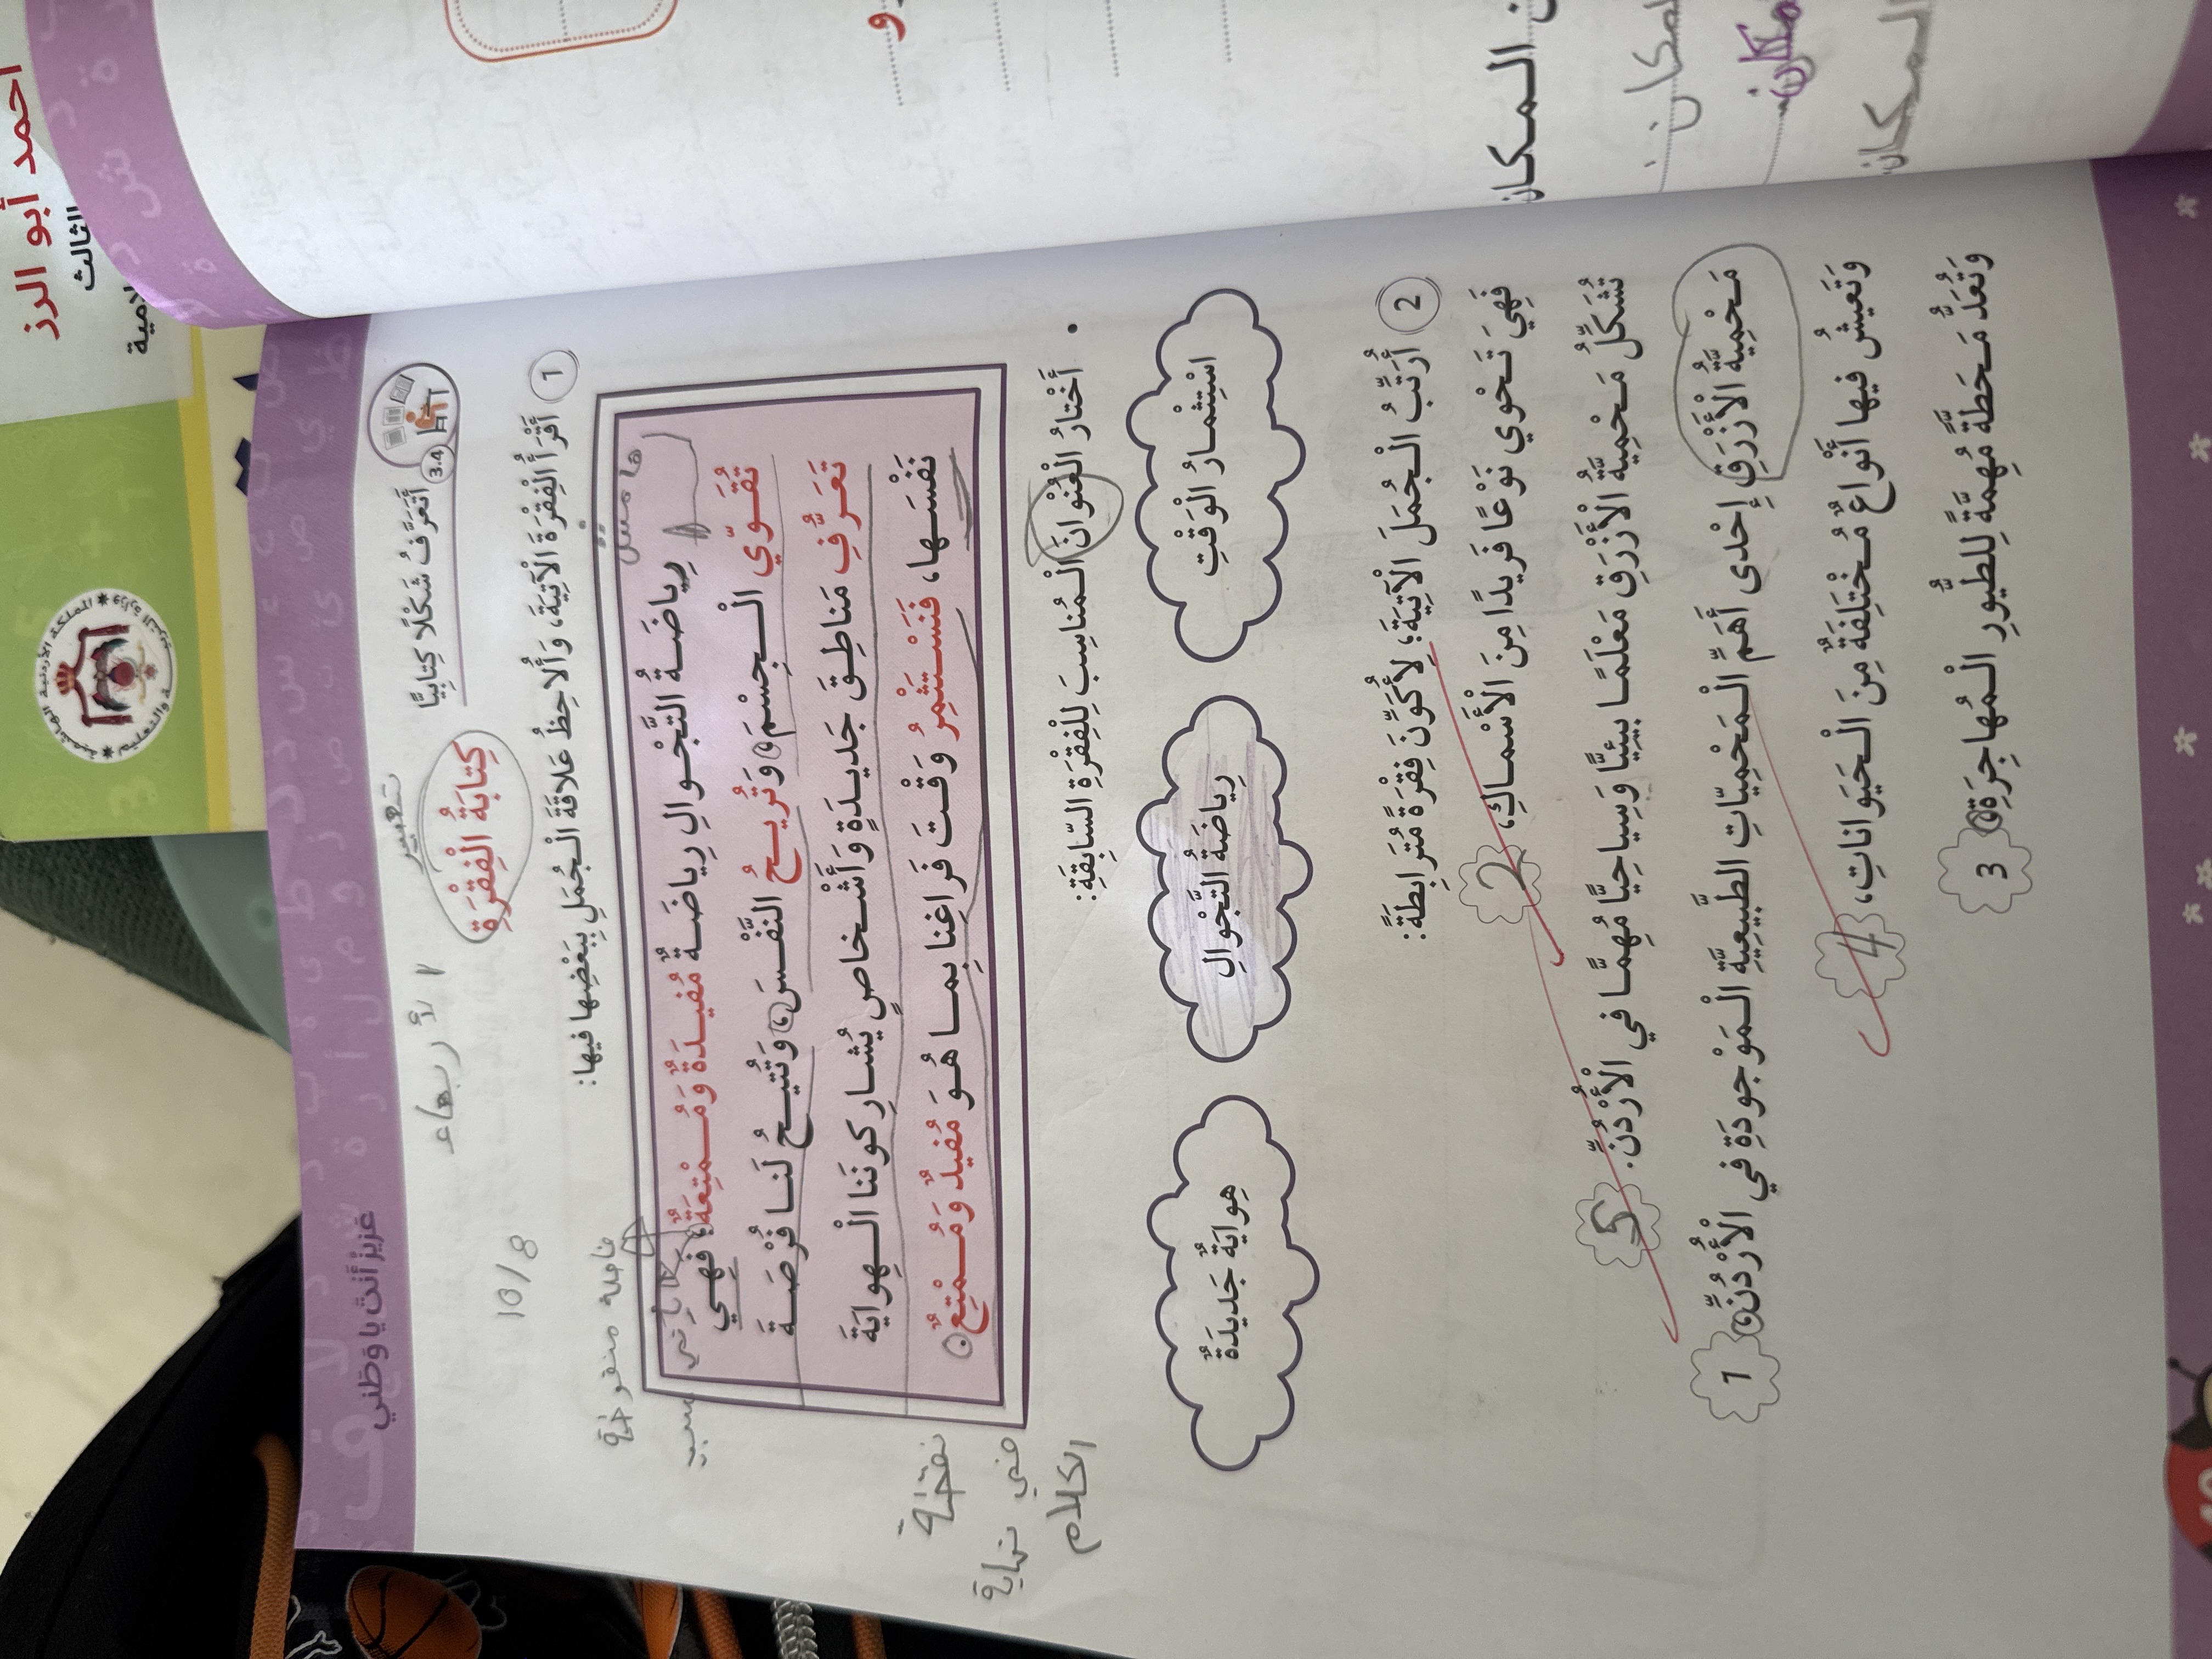 احمد أبو الرز
الثالث
عَزيزٌ أَنْتَ يا وَطَني
الأربعاء
10/8
تعبير
أَتَعَرَّفُ شَكْلًا كِتابِيًّا
3.4
كِتابَةُ الْفِقْرَةِ
1 أَقْرَأُ الْفِقْرَةَ الْآتِيَةَ، وَأُلاحِظُ عَلاقَةَ الْجُمَلِ بِبَعْضِها فيها:
هامش
رِياضَةُ التَّجْوالِ رِياضَةٌ مُفيدَةٌ وَمُمْتِعَةٌ؛ فَهِيَ
تُقَوّي الْجِسْمَ، وَتُريحُ النَّفْسَ، وَتُتيحُ لَنا فُرْصَةَ
تَعَرُّفِ مَناطِقَ جَديدَةٍ وَأَشْخاصٍ يُشارِكونَنا الْهِوايَةَ
نَفْسَها، فَنَسْتَثْمِرُ وَقْتَ فَراغِنا بِما هُوَ مُفيدٌ وَمُمْتِعٌ.
فاصلة منقوطة
نقطة
في نهاية
الكلام
• أَخْتارُ الْعُنْوانَ الْمُناسِبَ لِلْفِقْرَةِ السّابِقَةِ:
اسْتِثْمارُ الْوَقْتِ
رِياضَةُ التَّجْوالِ
هِوايَةٌ جَديدَةٌ
2 أُرَتِّبُ الْجُمَلَ الْآتِيَةَ؛ لِأُكَوِّنَ فِقْرَةً مُتَرابِطَةً:
فَهِيَ تَحْوي نَوْعًا فَريدًا مِنَ الْأَسْماكِ، 2
تُشَكِّلُ مَحْمِيَّةُ الْأَزْرَقِ مَعْلَمًا بيئِيًّا وَسِياحِيًّا مُهِمًّا في الْأُرْدُنِّ. 5
مَحْمِيَّةُ الْأَزْرَقِ إِحْدى أَهَمِّ الْمَحْمِيّاتِ الطَّبيعِيَّةِ الْمَوْجودَةِ في الْأُرْدُنِّ، 1
وَتَعيشُ فيها أَنْواعٌ مُخْتَلِفَةٌ مِنَ الْحَيَواناتِ، 4
وَتُعَدُّ مَحَطَّةً مُهِمَّةً لِلطُّيورِ الْمُهاجِرَةِ، 3
المكان
مكان
مكان
المكان